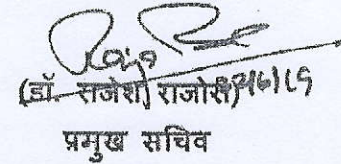 (डॉ. राजेश राजोरा)
प्रमुख सचिव